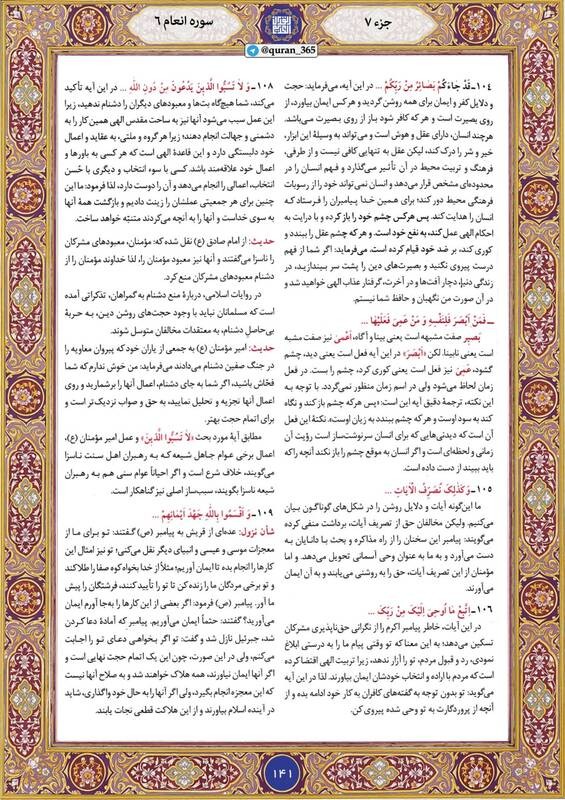 جزء ۷
سوره انعام ۶
@quran_365
۱۰۴- قَدْ جَاءَكُمْ بَصَائِرُ مِنْ رَبِّكُمْ ... در این آیه، می‌فرماید: حجت
و دلایل کفر و ایمان برای همه روشن گردید و هر کس ایمان بیاورد، از
روی بصیرت است و هر که کافر شود باز از روی بصیرت می‌باشد.
هرچند انسان، دارای عقل و هوش است و می‌تواند به وسیلهٔ این ابزار،
خیر و شر را درک کند، لیکن عقل به تنهایی کافی نیست و از طرفی،
فرهنگ و تربیت محیط در آن تأثیر می‌گذارد و فهم انسان را در
محدوده‌ای مشخص قرار می‌دهد و انسان نمی‌تواند خود را از رسوبات
فرهنگی محیط دور کند؛ برای همین خدا پیامبران را فرستاد که
انسان را هدایت کند. پس هرکس چشم خود را باز کرده و با درایت به
احکام الهی عمل کند، به نفع خود است. و هر که چشم عقل را ببندد و
کوری کند، بر ضد خود قیام کرده است. می‌فرماید: اگر شما از فهم
درست پیروی نکنید و بصیرت‌های دین را پشت سر بیندازید، در
زندگی دنیا، دچار آفت‌ها و در آخرت، گرفتار عذاب الهی خواهید شد و
در آن صورت من نگهبان و حافظ شما نیستم.
ـ فَمَنْ أَبْصَرَ فَلِنَفْسِهِ وَ مَنْ عَمِيَ فَعَلَيْهَا ...
بَصیر صفت مشبهه است یعنی بینا و آگاه، أعْمیٰ نیز صفت مشبه
است یعنی نابینا. لکن «أَبْصَرَ» در این آیه فعل است یعنی دید، چشم
گشود، عَمِيَ نیز فعل است یعنی کوری کرد، چشم را بست. در فعل
زمان لحاظ می‌شود ولی در اسم زمان منظور نمی‌گردد. با توجه به
این نکته، ترجمهٔ دقیق آیه این است: «پس هرکه چشم باز کند و نگاه
کند به سود اوست و هر که چشم ببندد به زیان اوست». نکتهٔ این فعل
آن است که دیدنی‌هایی که برای انسان سرنوشت‌ساز است رؤیت آن
زمانی و لحظه‌ای است و اگر انسان به موقع چشم را باز نکند آنچه را که
باید ببیند از دست داده است.
۱۰۵- وَ كَذلِكَ نُصَرِّفُ الْآيَاتِ ...
ما این‌گونه آیات و دلایل روشن را در شکل‌های گوناگون بیان
می‌کنیم. ولیکن مخالفان حق از تصریف آیات، برداشت منفی کرده
می‌گویند: پیامبر این سخنان را از راه مذاکره و بحث با دانایان به
دست می‌آورد و به ما به عنوان وحی آسمانی تحویل می‌دهد. و اما
مؤمنان از این تصریف آیات، حق را به روشنی می‌یابند و به آن ایمان
می‌آورند.
۱۰۶- اِتَّبِعْ مَا أُوحِيَ إِلَيْكَ مِنْ رَبِّكَ ...
در این آیات، خاطر پیامبر اکرم را از نگرانی حق‌ناپذیری مشرکان
تسکین می‌دهد؛ به این معنا که تو وقتی پیام ما را به درستی ابلاغ
نمودی، رد و قبول مردم، تو را آزار ندهد، زیرا تربیت الهی اقتضا کرده
است که مردم با اراده و انتخاب خودشان ایمان بیاورند. لذا در این آیه
می‌گوید: تو بدون توجه به گفته‌های کافران به کار خود ادامه بده و از
آنچه از پروردگارت به تو وحی شده پیروی کن.
۱۰۸- وَ لَا تَسُبُّوا الَّذِينَ يَدْعُونَ مِنْ دُونِ اللهِ ... در این آیه تأکید
می‌کند، شما هیچ‌گاه بت‌ها و معبودهای دیگران را دشنام ندهید، زیرا
این عمل سبب می‌شود آنها نیز به ساحت مقدس الهی همین کار را به
دشمنی و جهالت انجام دهند؛ زیرا هر گروه و ملتی، به عقاید و اعمال
خود دلبستگی دارد و این قاعدهٔ الهی است که هر کسی به باورها و
اعمال خود علاقه‌مند باشد. کسی با سوء انتخاب و دیگری با حُسن
انتخاب، اعمالی را انجام می‌دهد و آن را دوست دارد، لذا فرمود: ما این
چنین برای هر جمعیتی عملشان را زینت دادیم و بازگشت همهٔ آنها
به سوی خداست و آنها را به آنچه می‌کردند متنبّه خواهد ساخت.
حدیث: از امام صادق (ع) نقل شده که: مؤمنان، معبودهای مشرکان
را ناسزا می‌گفتند و آنها نیز معبود مؤمنان را، لذا خداوند مؤمنان را از
دشنام معبودهای مشرکان منع کرد.
در روایات اسلامی، دربارهٔ منع دشنام به گمراهان، تذکراتی آمده
است که مسلمانان نباید با وجود حجت‌های روشن دین، به حربهٔ
بی‌حاصلِ دشنام، به معتقدات مخالفان متوسل شوند.
حدیث: امیر مؤمنان (ع) به جمعی از یاران خود که پیروان معاویه را
در جنگ صفین دشنام می‌دادند می‌فرماید: من خوش ندارم که شما
فحّاش باشید، اگر شما به جای دشنام، اعمال آنها را برشمارید و روی
اعمال آنها تجزیه و تحلیل نمایید، به حق و صواب نزدیک‌تر است و
برای اتمام حجت بهتر.
مطابق آیهٔ مورد بحث «لَا تَسُبُّوا الَّذِينَ» و عمل امیر مؤمنان (ع)،
اعمال برخی عوام جاهل شیعه که به رهبران اهل سنت ناسزا
می‌گویند، خلاف شرع است و اگر احیاناً عوام سنی هم به رهبران
شیعه ناسزا بگویند، سبب‌ساز اصلی نیز گناهکار است.
۱۰۹- وَ أَقْسَمُوا بِاللهِ جَهْدَ أَيْمَانِهِمْ ...
شأن نزول: عده‌ای از قریش به پیامبر (ص) گفتند: تو برای ما از
معجزات موسی و عیسی و انبیای دیگر نقل می‌کنی؛ تو نیز امثال این
کارها را انجام بده تا ایمان آوریم؛ مثلاً از خدا بخواه کوه صفا را طلا کند
و تو برخی مردگان ما را زنده کن تا تو را تأیید کنند، فرشتگان را پیش
ما آور. پیامبر (ص) فرمود: اگر بعضی از این کارها را به‌جا آورم ایمان
می‌آورید؟ گفتند: حتماً ایمان می‌آوریم. پیامبر که آمادهٔ دعا کردن
شد، جبرئیل نازل شد و گفت: تو اگر بخواهی دعای تو را اجابت
می‌کنم، ولی در این صورت، چون این یک اتمام حجت نهایی است و
اگر آنها ایمان نیاورند، همه هلاک خواهند شد و به صلاح آنها نیست
که این معجزه انجام بگیرد، ولی اگر آنها را به حال خود واگذاری، شاید
در آینده اسلام بیاورند و از این هلاکت قطعی نجات یابند.
۱۴۱